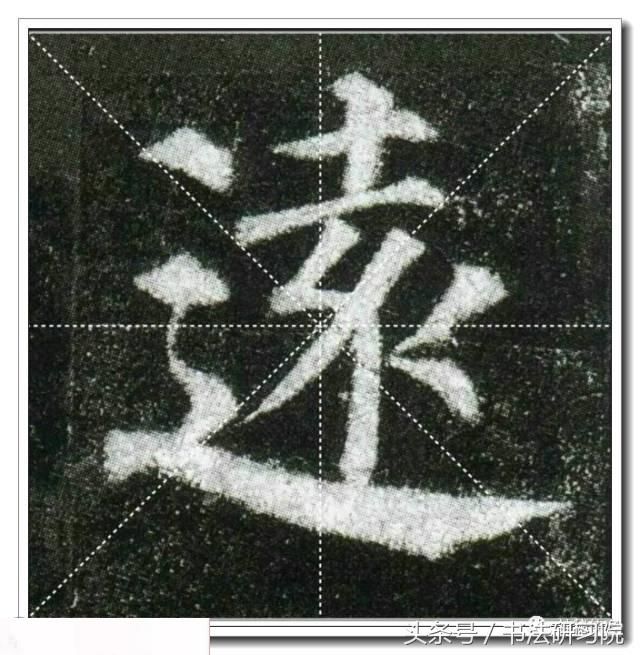 遠
头条号 / 书法研习院